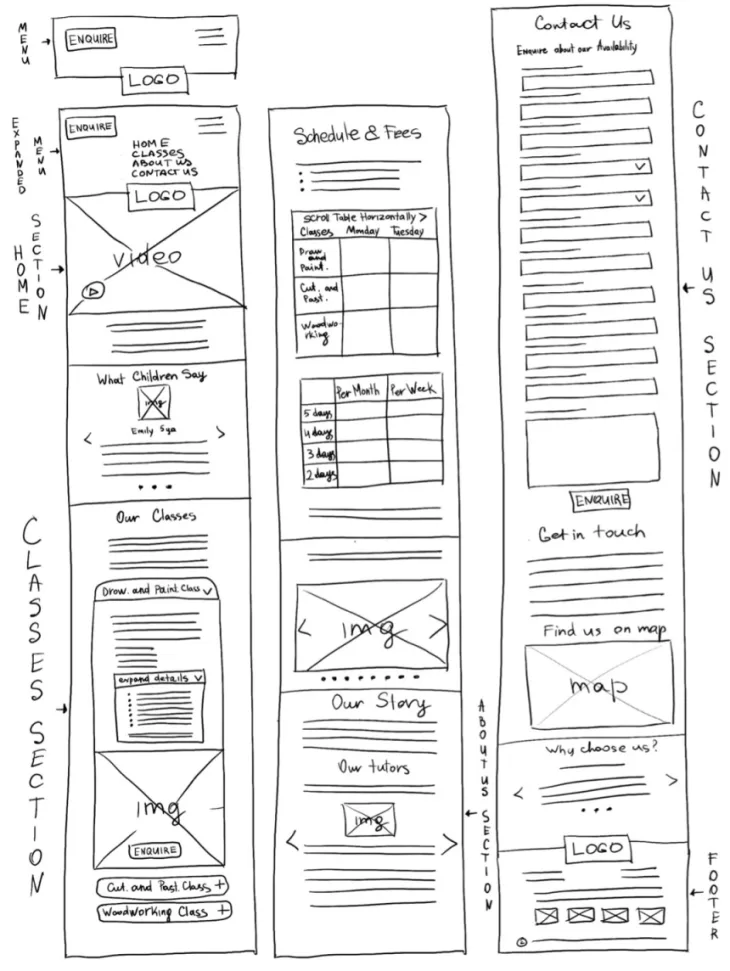 MENU
ENQUIRE
LOGO
EXPANDED MENU
ENQUIRE
HOME
CLASSES
ABOUT US
CONTACT US
LOGO
HOME SECTION
video
What Children Say
img
Emily Sya
< >
CLASSES SECTION
Our Classes
Draw. and Paint. Class
expand details
img
ENQUIRE
Cut. and Past. Class +
Woodworking Class +
Schedule & Fees
Scroll Table Horizontally >
Classes Monday Tuesday
Draw.
and
Paint.
Cut. and
Past.
Woodwo-
rking
Per Month Per Week
5 days
4 days
3 days
2 days
< img >
ABOUT US SECTION
Our Story
Our tutors
img
< >
CONTACT US SECTION
Contact Us
Enquire about our Availability
ENQUIRE
Get in touch
Find us on map
map
Why choose us?
< >
FOOTER
LOGO
©